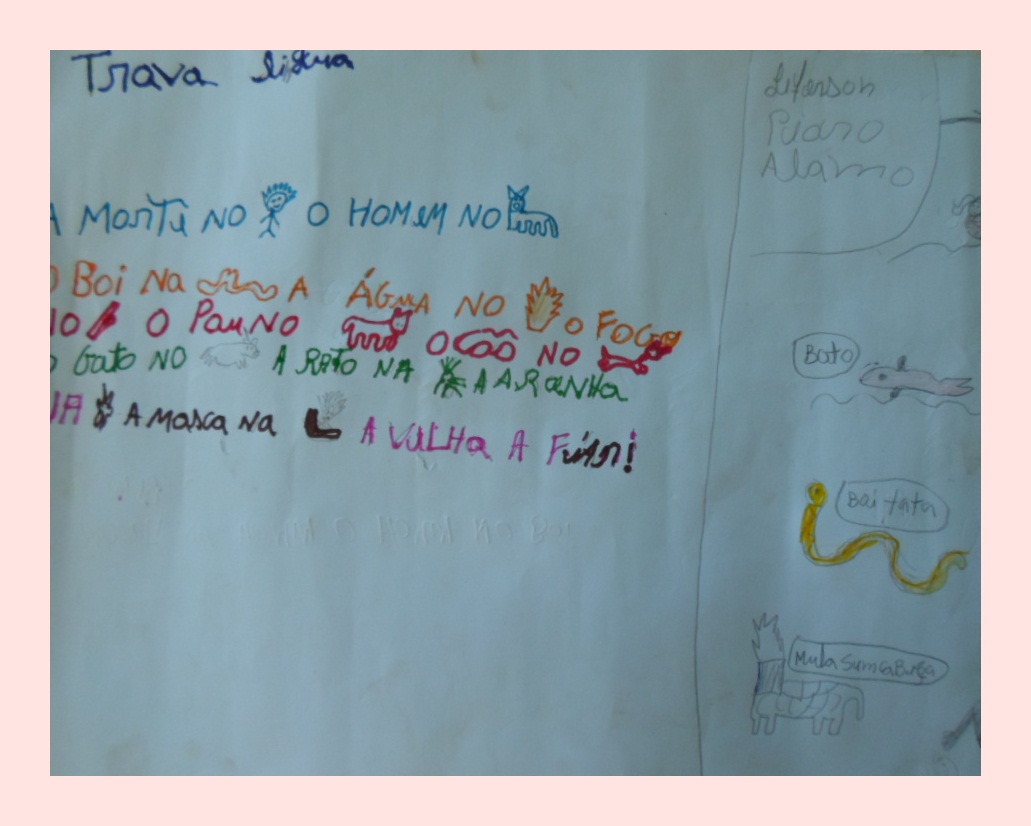 Trava língua
A MORTE NO O HOMEM NO
O Boi Na A ÁGUA NO O FOGO
NO O Pau NO O CÃO NO
O Gato NO A RATO NA A ARANHA
NA A MOSCA Na A VULHA A Fiar!
Pidro
Alamo
Boto
Boi tata
Mula Sum caBeça